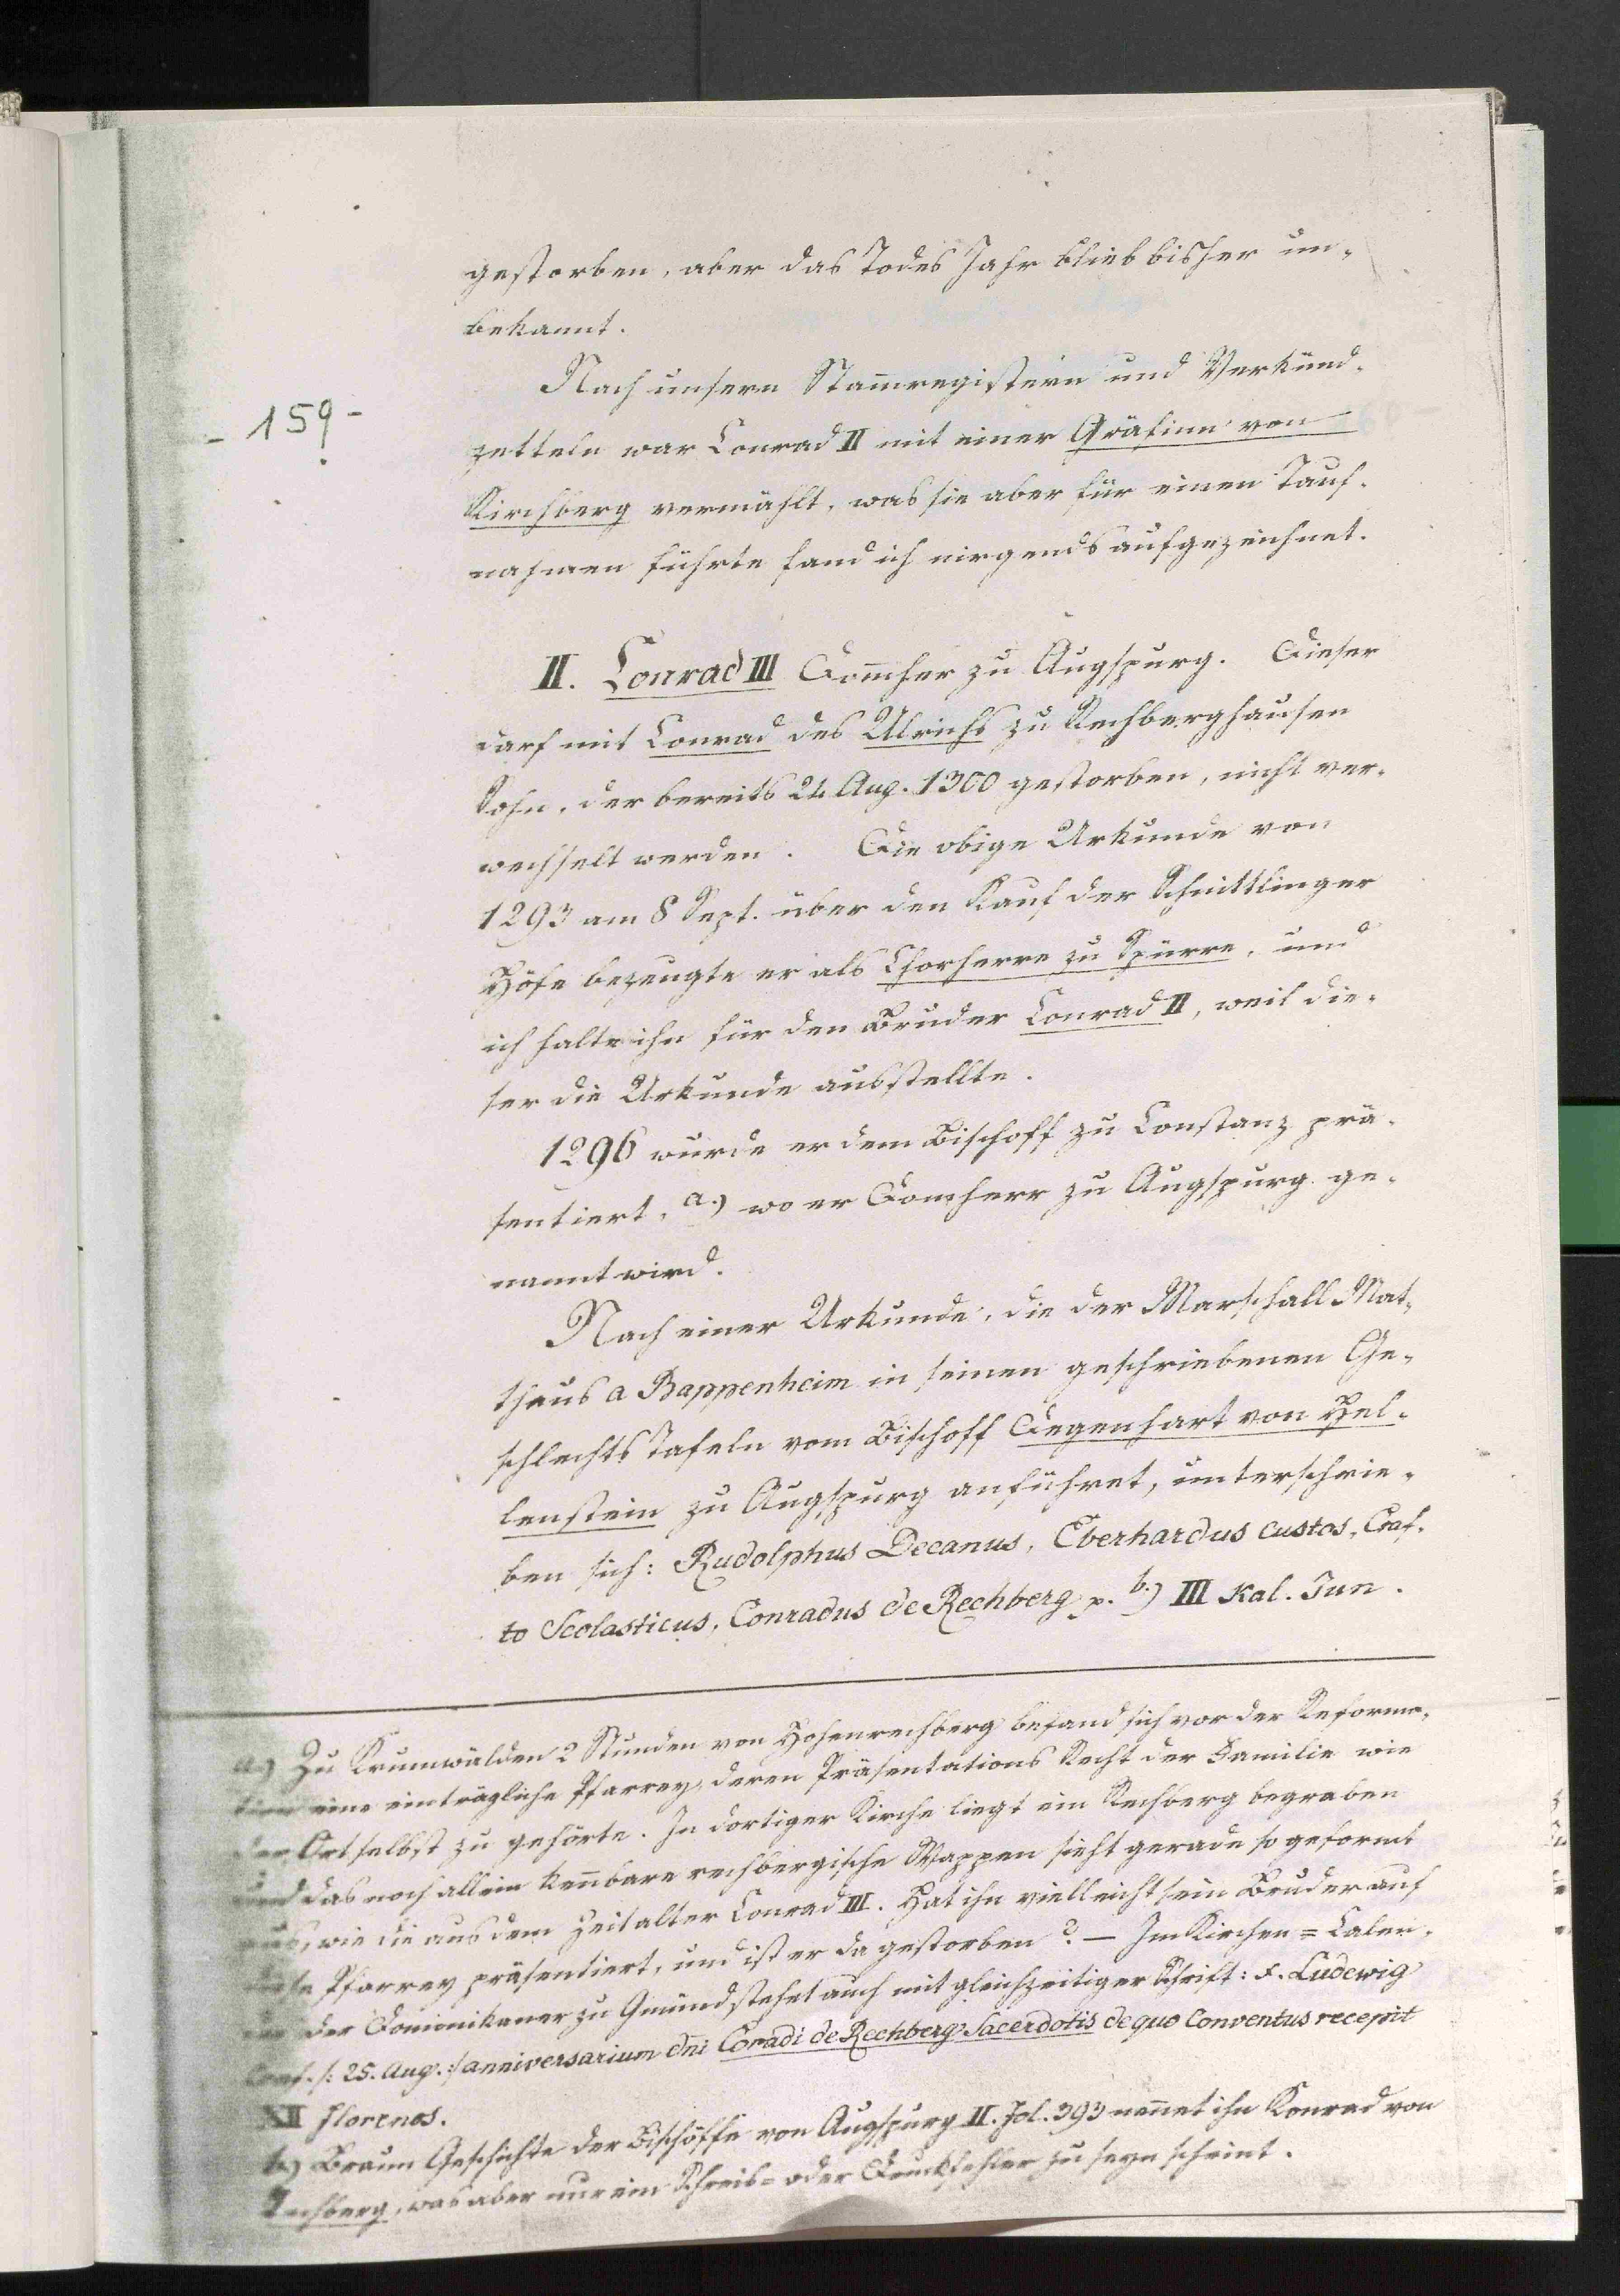 gestorben, aber das Todes Jahr blieb bisher un-
bekannt.
Nach unsern Stam̅registern und Verkünd-
- 159 -
zetteln war Conrad II mit einer Gräfinn von
Kirchberg vermählt, was sie aber für einen Tauf-
nahmen führte fand ich nirgends aufgezeichnet.
II. Conrad III Dom̅her zu Augspurg. Dieser
darf mit Conrad des Ulrichs zu Rechberghausen
Sohn, der bereits 24 Aug. 1300 gestorben, nicht ver-
wechselt werden. Die obige Urkunde von
1293 am 8 Sept. über den Kauf der Schnittlinger
Höfe bezeugte er als Chorherre zu Spürre, und
ich halte ihn für den Bruder Conrad II, weil die-
ser die Urkunde ausstellte.
1296 wurde er dem Bischoff zu Constanz prä-
sentiert, a.) wo er Domherr zu Augspurg ge-
nannt wird.
Nach einer Urkunde, die der Marschall Mat-
thäus a Bappenheim in seinen geschriebenen Ge-
schlechts Tafeln vom Bischoff Degenhart von Hel-
lenstein zu Augspurg anführet, unterschrie-
ben sich: Rudolphus Decanus, Eberhardus custos, Craf-
to Scolasticus, Conradus de Rechberg p. b.) III Kal. Jun.
a.) Zu Krumwälden 2 Stunden von Hohenrechberg befand sich vor der Reforma-
tion eine einträgliche Pfarrey, deren Präsentations Recht der Familie wie
der Ort selbst zu gehörte. In dortiger Kirche liegt ein Rechberg begraben
und das noch allein ken̅bare rechbergische Wappen sieht gerade so geformt
aus, wie die aus dem Zeitalter Conrad III. Hat ihn vielleicht sein Bruder auf
diese Pfarrey präsentiert, und ist er da gestorben? — Im Kirchen = Calen-
der Dominikaner zu Gmünd stehet auch mit gleichzeitiger Schrift: F. Ludewig
Conf. /: 25. Aug. :/ anniversarium dni Coradi de Rechberg Sacerdotis de quo Conventus recepit
XII florenos.
b.) Braun Geschichte der Bischöffe von Augspurg II. Fol. 393 nen̅et ihn Konrad von
Lechberg, was aber nur ein Schreib= oder Druckfehler zu seyn scheint.